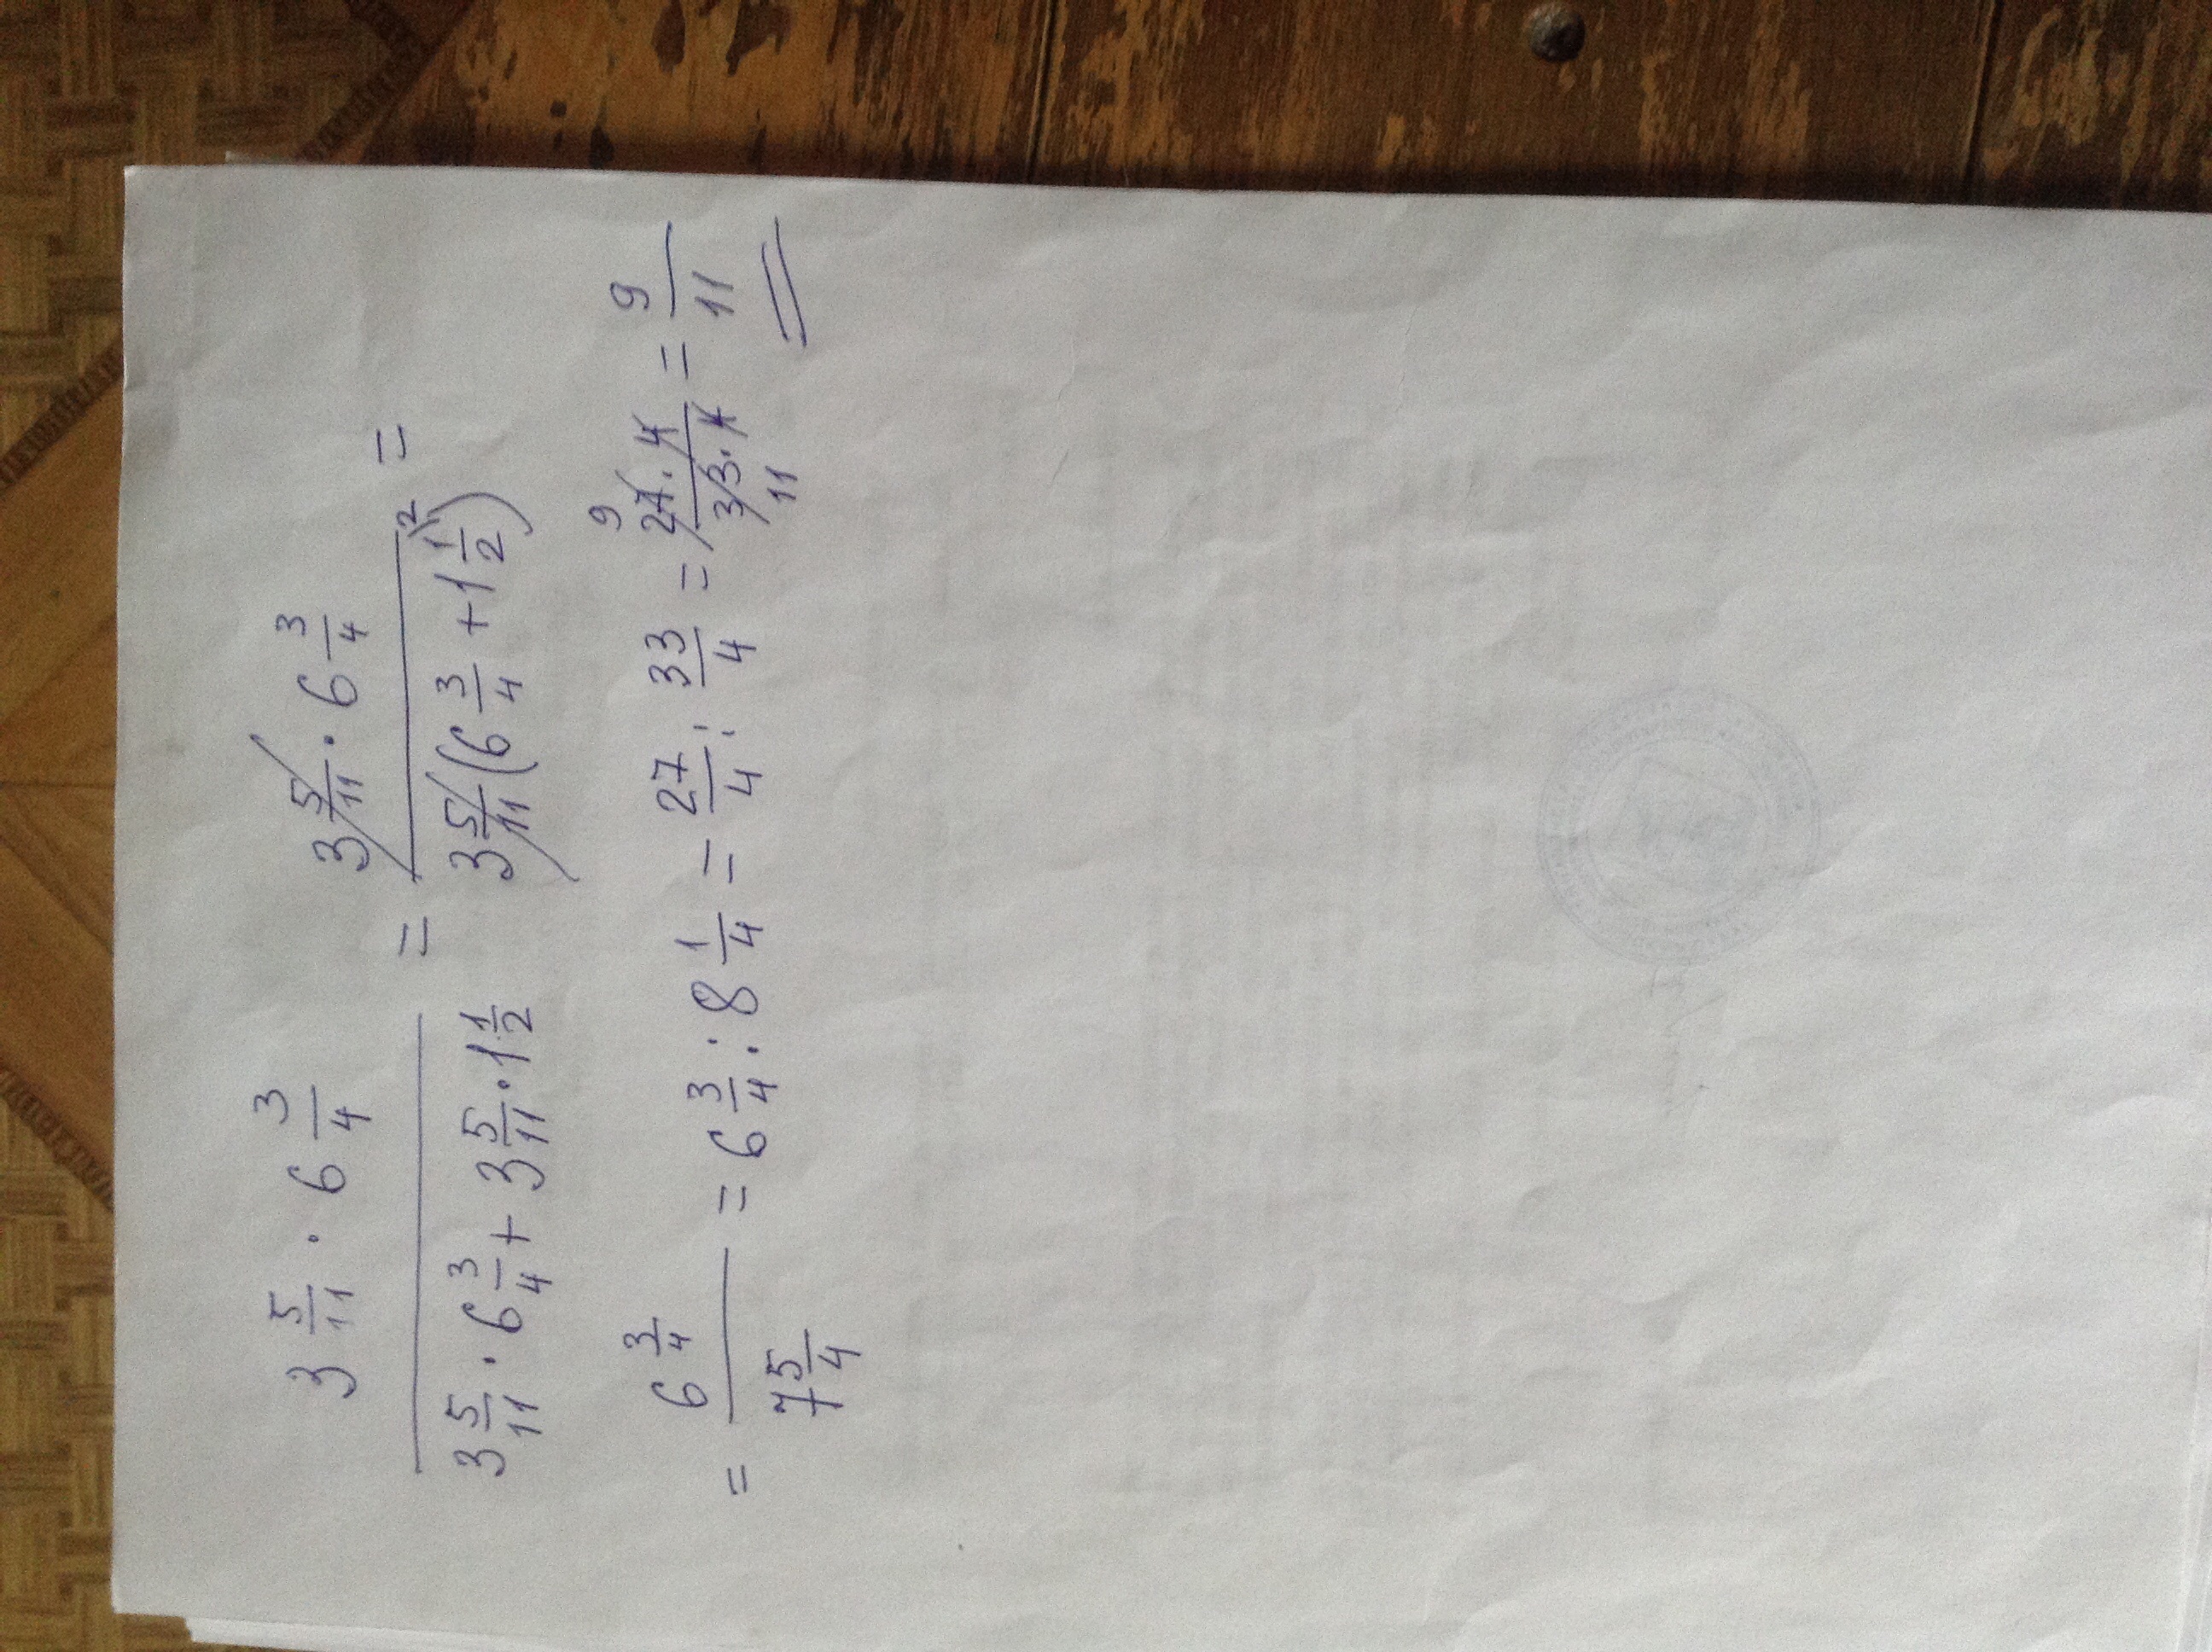 3 5/11 · 6 3/4 / 3 5/11 · 6 3/4 + 3 5/11 · 1 1/2 = 3 5/11 · 6 3/4 / 3 5/11 (6 3/4 + 1 1/2 ²) =
= 6 3/4 / 7 5/4 = 6 3/4 : 8 1/4 = 27/4 : 33/4 = 9 27 · 4 / 33 · 4 11 = 9/11